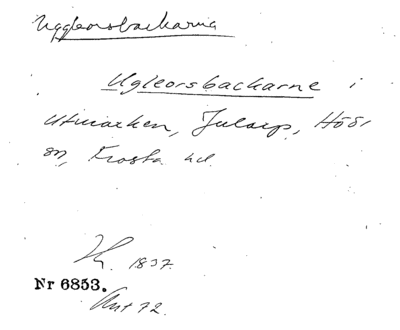 Uggleorsbackarna
Ugleorsbackarne i
Utmarken, Jularp, Höör
sn, Frosta hd.
1837.
Nr 6853.
Ant 72.